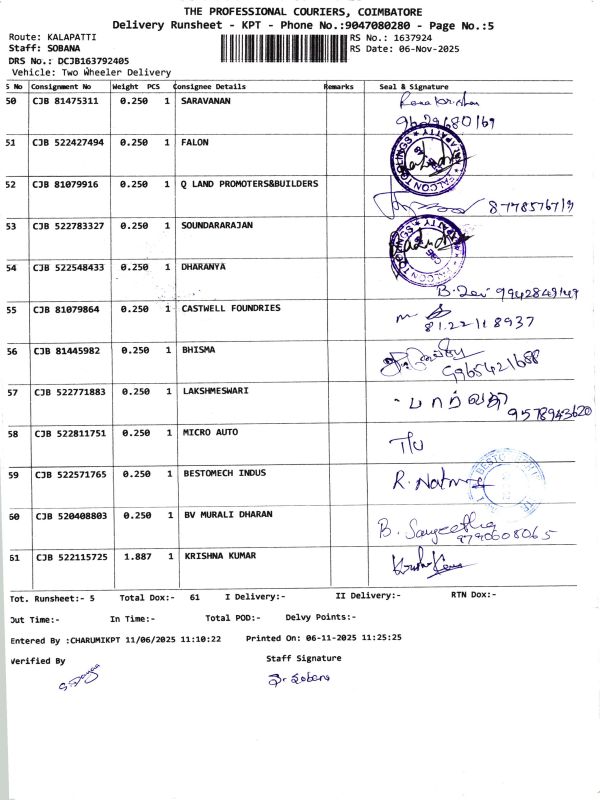 THE PROFESSIONAL COURIERS, COIMBATORE
Delivery Runsheet - KPT - Phone No.:9047080280 - Page No.:5
Route: KALAPATTI
RS No.: 1637924
Staff: SOBANA
RS Date: 06-Nov-2025
DRS No.: DCJB163792405
Vehicle: Two Wheeler Delivery
S No Consignment No Weight PCS Consignee Details Remarks Seal & Signature
50 CJB 81475311 0.250 1 SARAVANAN
9629680169
51 CJB 522427494 0.250 1 FALON
FALCON TOOLINGS
52 CJB 81079916 0.250 1 Q LAND PROMOTERS&BUILDERS
53 CJB 522783327 0.250 1 SOUNDARARAJAN
FALCON TOOLINGS
54 CJB 522548433 0.250 1 DHARANYA
B. Devi 9942849149
55 CJB 81079864 0.250 1 CASTWELL FOUNDRIES
8122118937
56 CJB 81445982 0.250 1 BHISMA
9965421688
57 CJB 522771883 0.250 1 LAKSHMESWARI
பார்வதி
9578943620
58 CJB 522811751 0.250 1 MICRO AUTO
59 CJB 522571765 0.250 1 BESTOMECH INDUS
60 CJB 520408803 0.250 1 BV MURALI DHARAN
B. Sangeetha
9790608065
61 CJB 522115725 1.887 1 KRISHNA KUMAR
Tot. Runsheet:- 5 Total Dox:- 61 I Delivery:- II Delivery:- RTN Dox:-
Out Time:- In Time:- Total POD:- Delvy Points:-
Entered By :CHARUMIKPT 11/06/2025 11:10:22 Printed On: 06-11-2025 11:25:25
Verified By Staff Signature